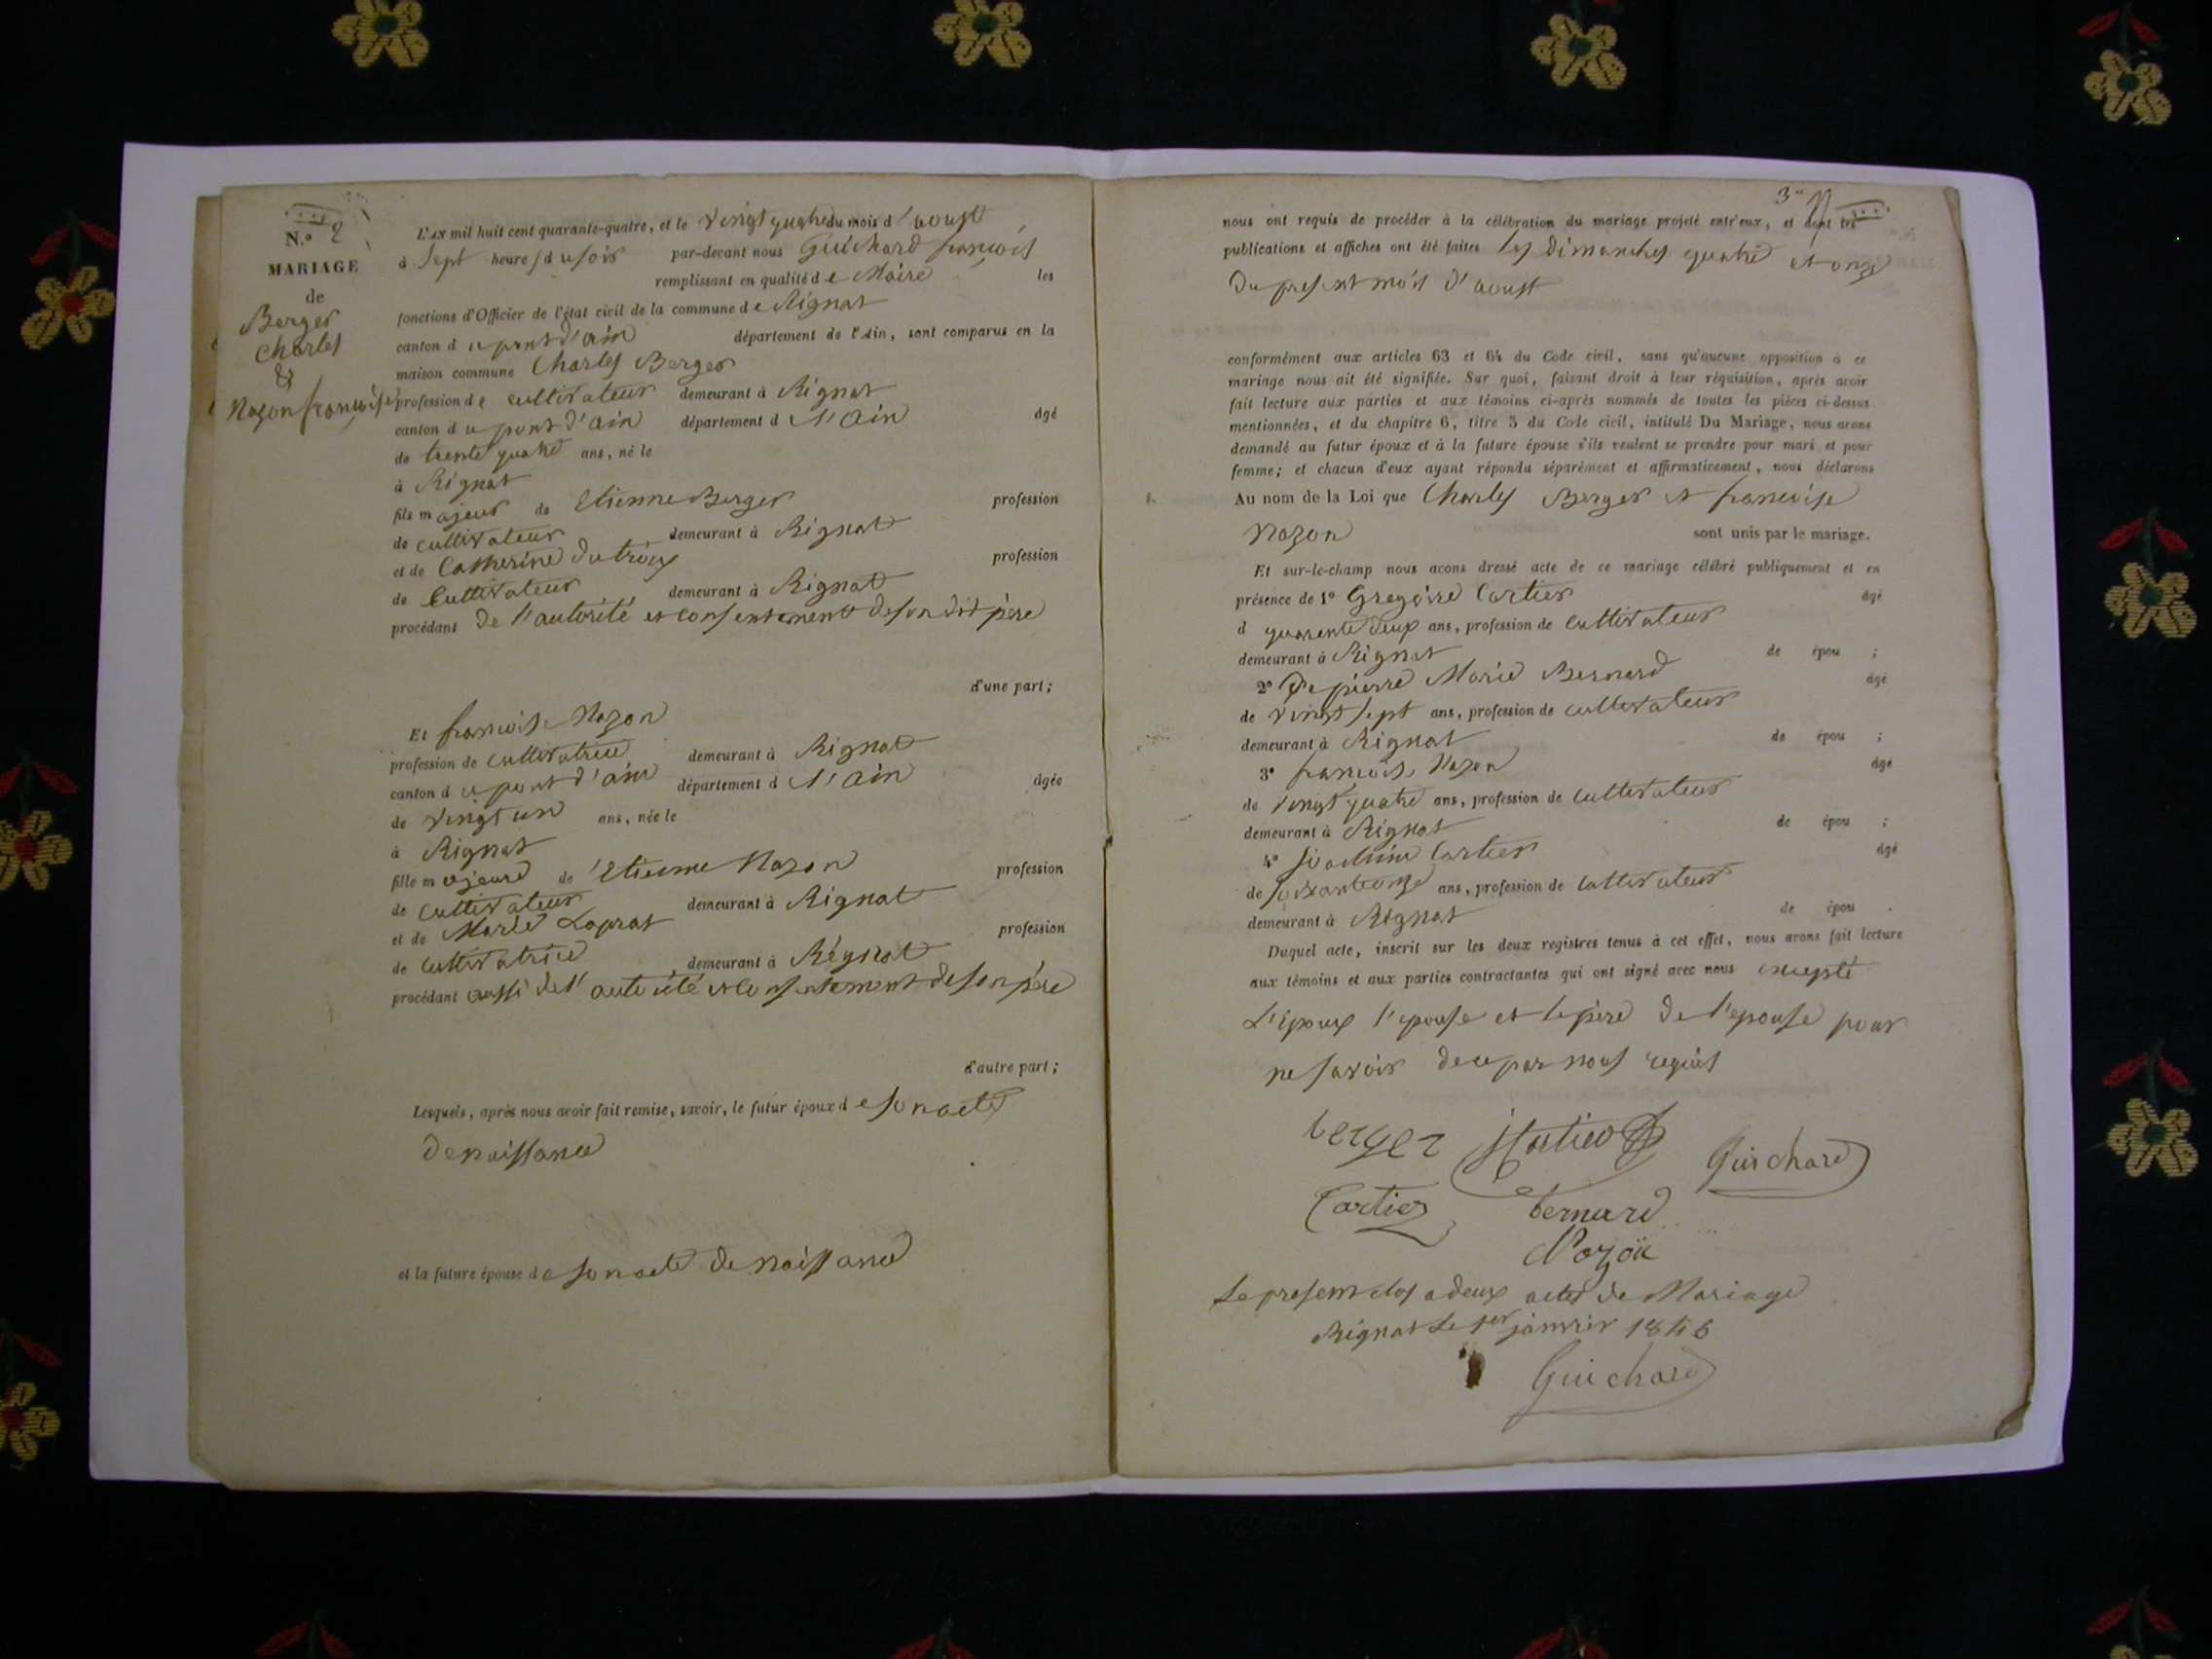 N.° 2
MARIAGE
de
Berger
Charles
&
Nazon françoise
L'AN mil huit cent quarante-quatre, et le vingt quatre du mois d'aoust
à sept heures du soir par-devant nous Guichard françois
remplissant en qualité de Maire les
fonctions d'Officier de l'état civil de la commune de Rignat
canton du pont d'ain département de l'Ain, sont comparus en la
maison commune Charles Berger
profession de cultivateur demeurant à Rignat
canton du pont d'ain département de l'ain âgé
de trente quatre ans, né le
à Rignat
fils majeur de Etienne Berger profession
de cultivateur demeurant à Rignat
et de Catherine profession
de Cultivateur demeurant à Rignat
procédant de l'autorité et consentement de son dit père
d'une part;
Et françoise Nazon
profession de cultivatrice demeurant à Rignat
canton du pont d'ain département de l'ain âgée
de vingt un ans, née le
à Rignat
fille majeure de Etienne Nazon profession
de cultivateur demeurant à Rignat
et de Marie Laprat profession
de cultivatrice demeurant à Rignat
procédant aussi de l'autorité et consentement de son père
d'autre part;
Lesquels, après nous avoir fait remise, savoir, le futur époux de son acte
de naissance
et la future épouse de son acte de naissance
3e
nous ont requis de procéder à la célébration du mariage projeté entr'eux, et dont les
publications et affiches ont été faites les dimanches quatre et onze
du present mois d'aoust
conformément aux articles 63 et 64 du Code civil, sans qu'aucune opposition à ce
mariage nous ait été signifiée. Sur quoi, faisant droit à leur réquisition, après avoir
fait lecture aux parties et aux témoins ci-après nommés de toutes les pièces ci-dessus
mentionnées, et du chapitre 6, titre 5 du Code civil, intitulé Du Mariage, nous avons
demandé au futur époux et à la future épouse s'ils veulent se prendre pour mari et pour
femme; et chacun d'eux ayant répondu séparément et affirmativement, nous déclarons
Au nom de la Loi que Charles Berger et françoise
Nazon sont unis par le mariage.
Et sur-le-champ nous avons dressé acte de ce mariage célébré publiquement et en
présence de 1° Gregoire Cartier âgé
d quarente deux ans, profession de cultivateur
demeurant à Rignat de épou ;
2° De pierre Marie Bernard âgé
de vingt sept ans, profession de cultivateur
demeurant à Rignat de épou ;
3° françois Nazon âgé
de vingt quatre ans, profession de cultivateur
demeurant à Rignat de épou ;
4° Cartier âgé
de soixante onze ans, profession de cultivateur
demeurant à Rignat de épou .
Duquel acte, inscrit sur les deux registres tenus à cet effet, nous avons fait lecture
aux témoins et aux parties contractantes qui ont signé avec nous excepté
L'époux l'epouse et le père de l'epouse pour
ne savoir de ce par nous requis
berger Guichard
Cartier bernard
Nazon
Le present clos a deux actes de Mariage
Rignat le 1er janvier 1845
Guichard